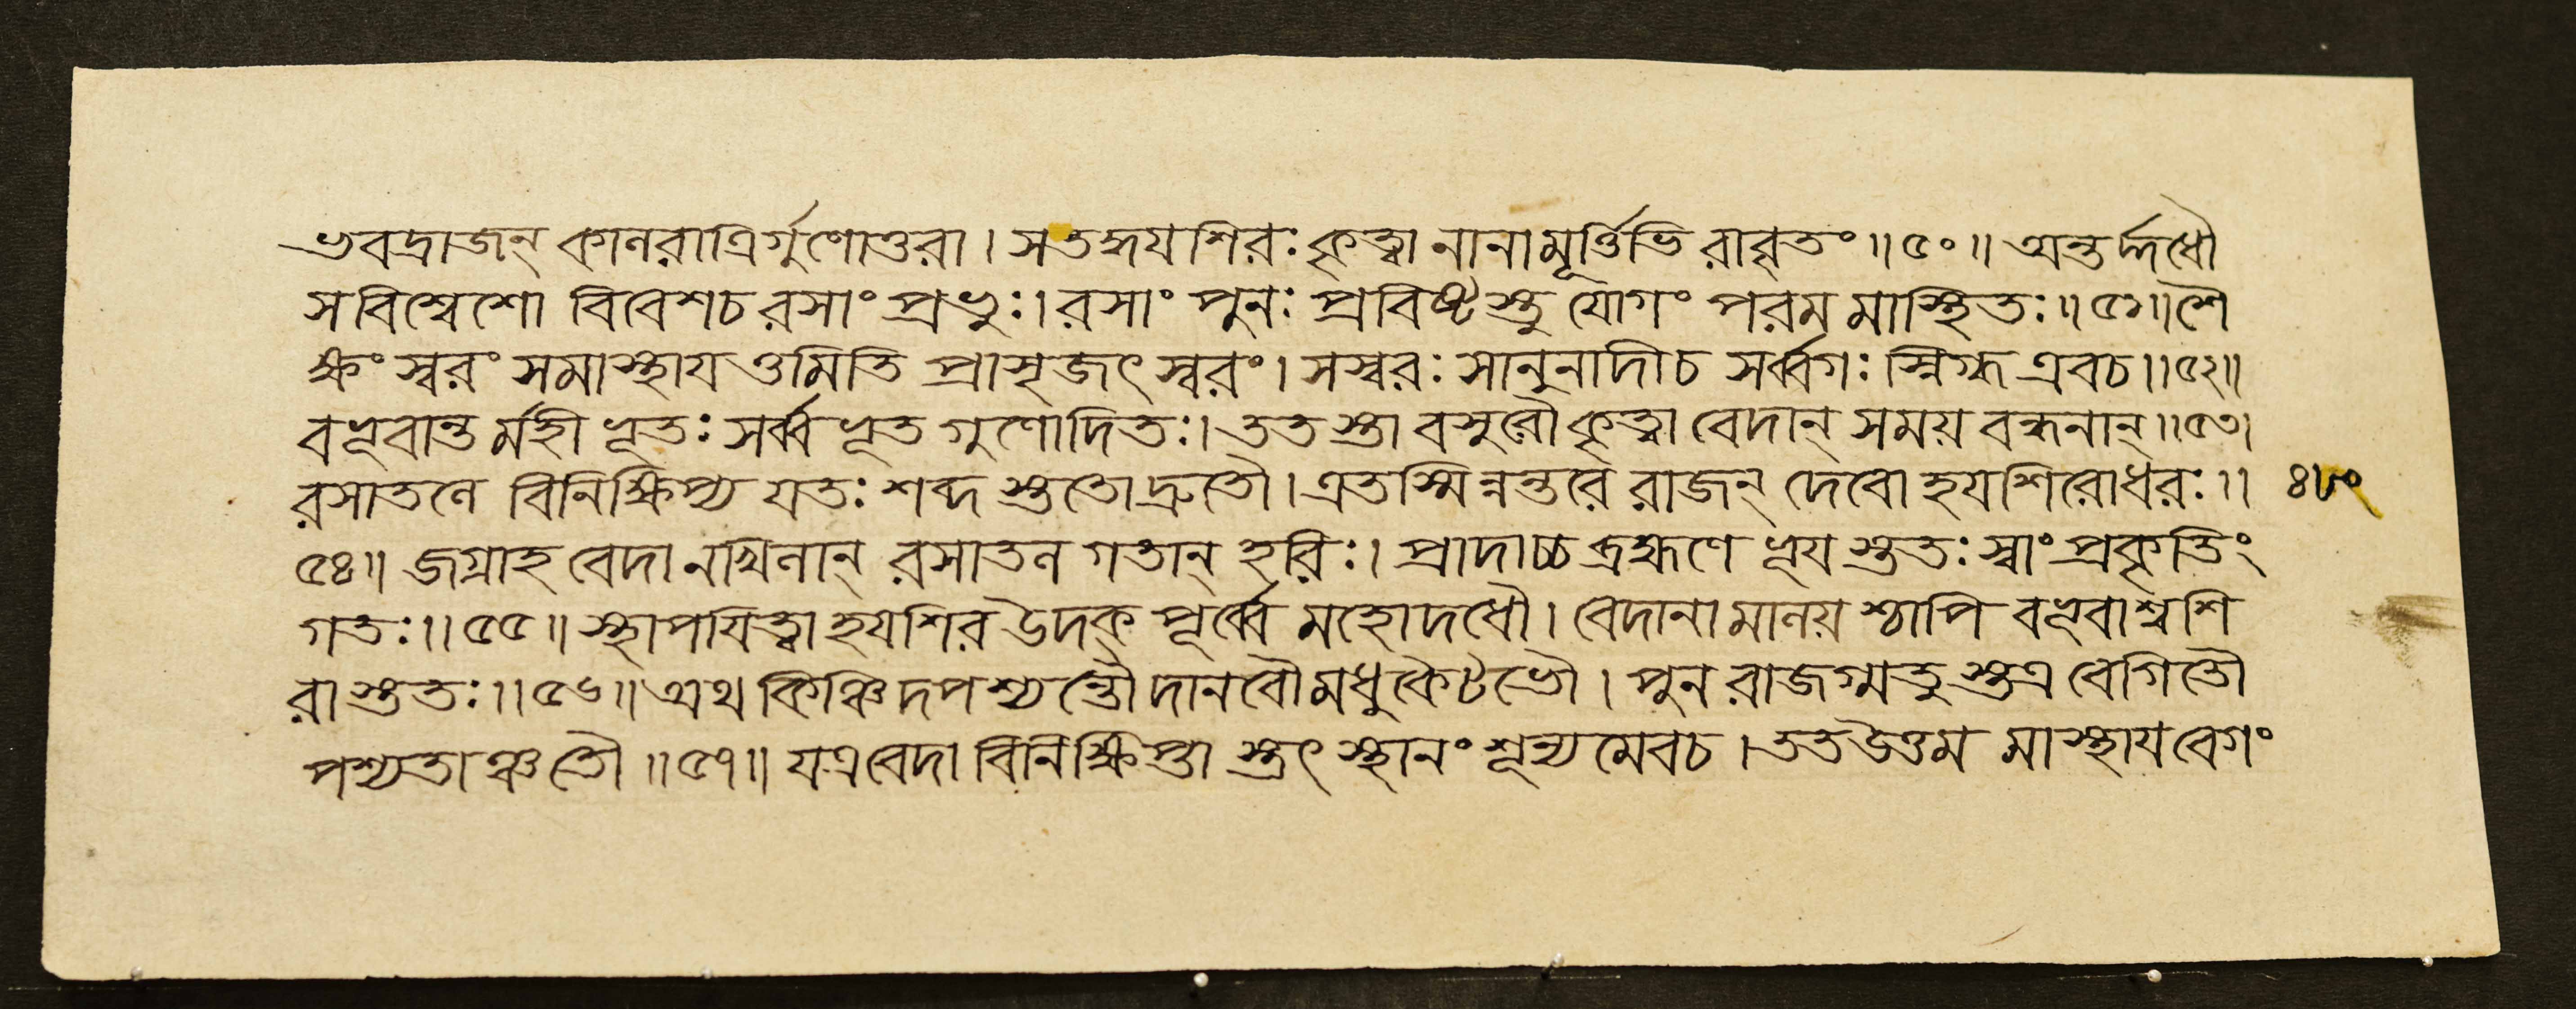 ভবদ্রাজন্ কালরাত্রির্গুণোত্তরা। সতদ্ধয়শিরঃ কৃত্বা নানামূর্ত্তিভি রাবৃতং॥৫০॥ অন্তর্দ্দধৌ
সবিশ্বেশো বিবেশচ রসাং প্রভুঃ। রসাং পুনঃ প্রবিষ্টস্তু যোগং পরম মাস্থিতঃ॥৫১॥শৈ
ক্ষং স্বরং সমাস্থায ওমিতি প্রাসৃজৎ স্বরং। সস্বরঃ সানুনাদীচ সর্ব্বগঃ স্নিগ্ধ এবচ॥৫২॥
বভূবান্ত র্মহী ভূতঃ সর্ব্ব ভূত গুণোদিতঃ। তত স্তা বসুরৌ কৃত্বা বেদান্ সময় বন্ধনান্॥৫৩।
রসাতলে বিনিক্ষিপ্য যতঃ শব্দ স্তুতো দ্রুতৌ। এতস্মিন্নন্তরে রাজন্ দেবো হযশিরোধরঃ॥
৫৪॥ জগ্রাহ বেদা নখিলান্ রসাতল গতান্ হরিঃ। প্রাদাচ্চ ব্রহ্মণে ভূয স্ততঃ স্বাং প্রকৃতিং
গতঃ॥৫৫॥ স্থাপযিত্বা হযশির উদক্ পূর্ব্বে মহোদধৌ। বেদানা মালয় শ্চাপি বভূবাশ্বশি
রা স্ততঃ॥৫৬॥ অথ কিঞ্চি দপশ্য ন্তৌ দানবৌ মধুকৈটভৌ। পুন রাজগ্মতু স্তত্র বেগিতৌ
পশ্যতা ঞ্চ তৌ॥৫৭॥ যত্র বেদা বিনিক্ষিপ্তা স্তৎ স্থানং শূন্য মেবচ। তত উত্তম মাস্থায বেগং